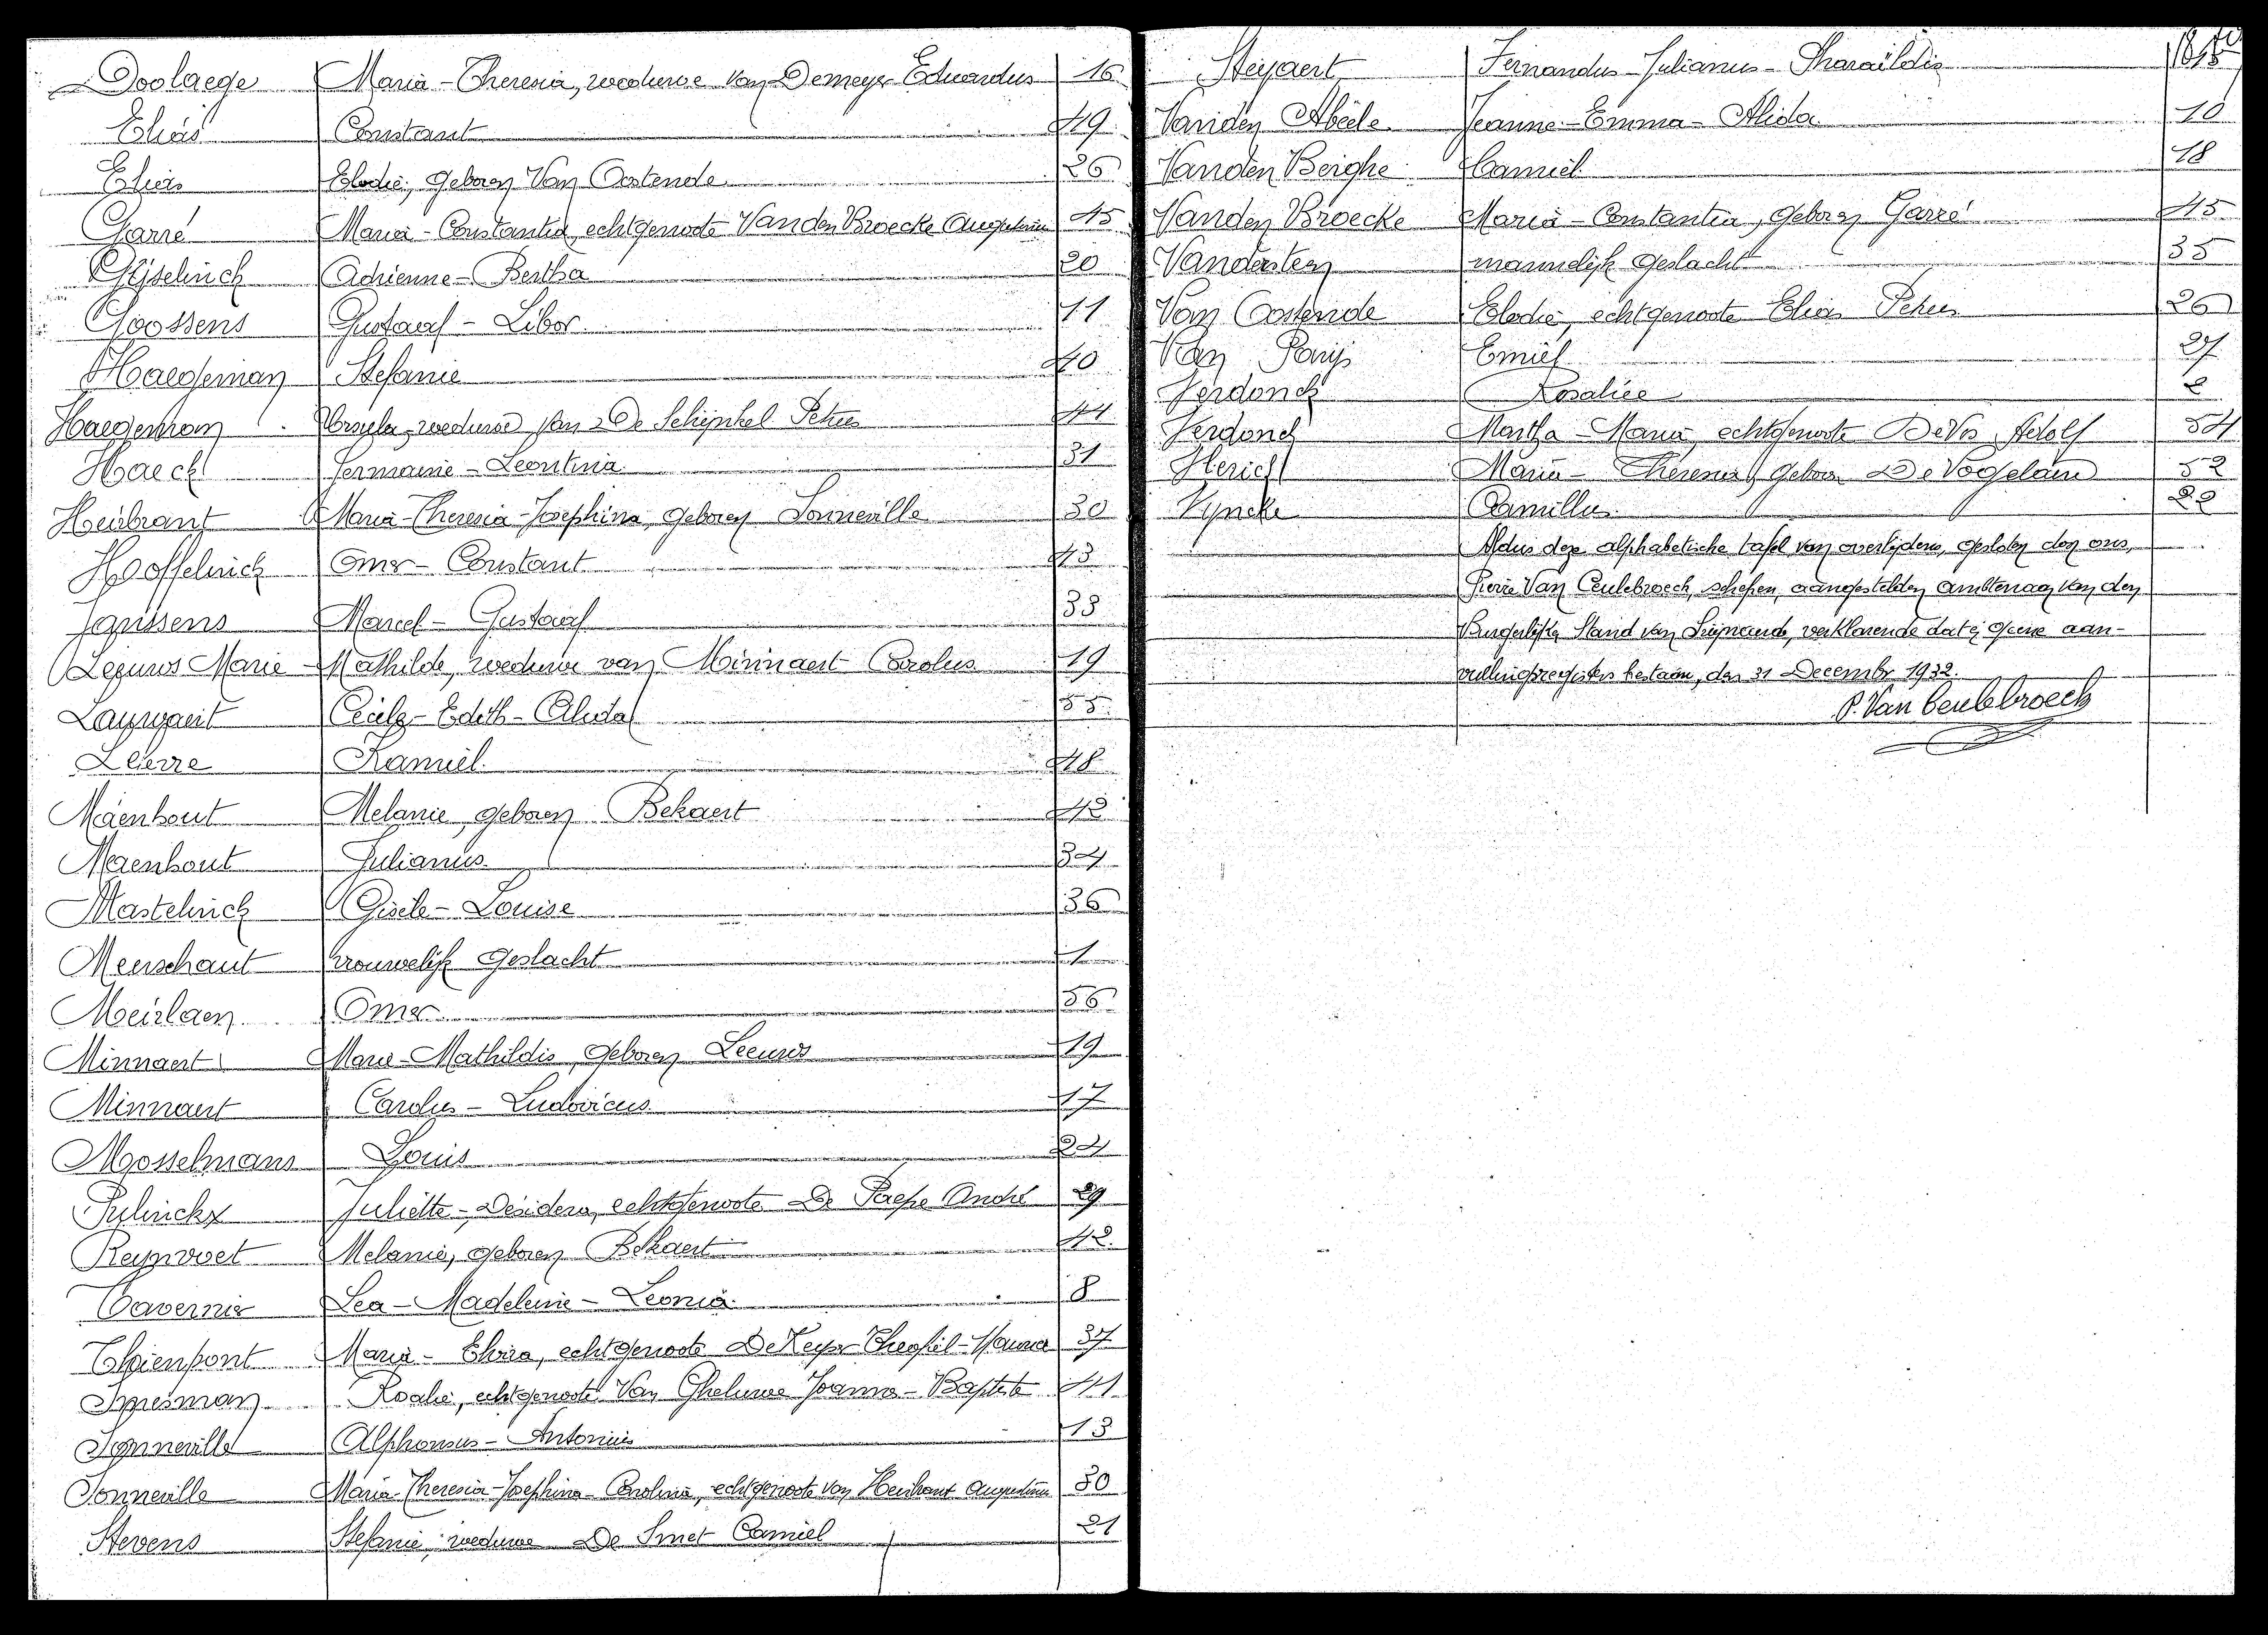 Doolaege Maria-Theresia, weduwe van Demeyer Eduardus 16
Elias Constant 49
Elias Elodie, geboren Van Oostende 26
Garré Maria-Constantia, echtgenoote Vanden Broecke Augustinus 45
Gijselinck Adrienne-Bertha 20
Goossens Gustaaf-Libor 11
Haegeman Stefanie 40
Haegeman Ursula, weduwe van De Schijnkel Petrus 44
Haeck Germaine-Leontina 31
Heubrant Maria-Theresia-Josephina, geboren Sonneville 30
Hoffelinck Omer-Constant 43
Janssens Marcel-Gustaaf 33
Leeuws Marie-Mathilde, weduwe van Minnaert Carolus 19
Cecile-Edith-Alida 55
Kamiel 48
Maenhout Melanie, geboren Bekaert 42
Maenhout Julianus 34
Mastelinck Gisèle-Louise 36
Meerschaut vrouwelijk geslacht 1
Meirlaen Omer 56
Minnaert Marie-Mathildis, geboren Leeuws 19
Minnaert Carolus-Ludovicus 17
Mosselmans Louis 24
Pulinckx Juliette-Desidera, echtgenoote De Paepe André 29
Reynvoet Melanie, geboren Bekaert 42
Tavernier Lea-Madeleine-Leonia 8
Thienpont Maria-Elvira, echtgenoote De Keyser Theofiel-Maurice 37
Speisman Rosalie, echtgenoote Van Gheluwe Joannes-Baptiste 41
Sonneville Alphonsus-Antonius 13
Sonneville Maria-Theresia-Josephina-Carolina, echtgenoote van Heubrant Augustinus 30
Stevens Stefanie, weduwe De Smet Camiel 21
Steyaert Fernandus-Julianus-Pharaïldis
Vanden Abeele Jeanne-Emma-Alida 10
Vanden Berghe Camiel 18
Vanden Broecke Maria-Constantia, geboren Garré 45
Vandersteen mannelijk geslacht 35
Van Oostende Elodie, echtgenoote Elias Petrus 26
Van Parijs Emiel 27
Verdonck Rosalice 2
Verdonck Martha-Maria, echtgenoote De Vos Adolf 54
Maria-Theresia, geboren De Vogelaere 52
Vyncke Camillus 22
Aldus deze alphabetische tafel van overlijdens, gesloten door ons,
Pierre Van Ceulebroeck, schepen, aangestelden ambtenaar van den
Burgerlijke Stand van Sijnande, verklarende dat er geene aan-
vullingsregisters bestaan, den 31 December 1932.
P. Van Ceulebroeck